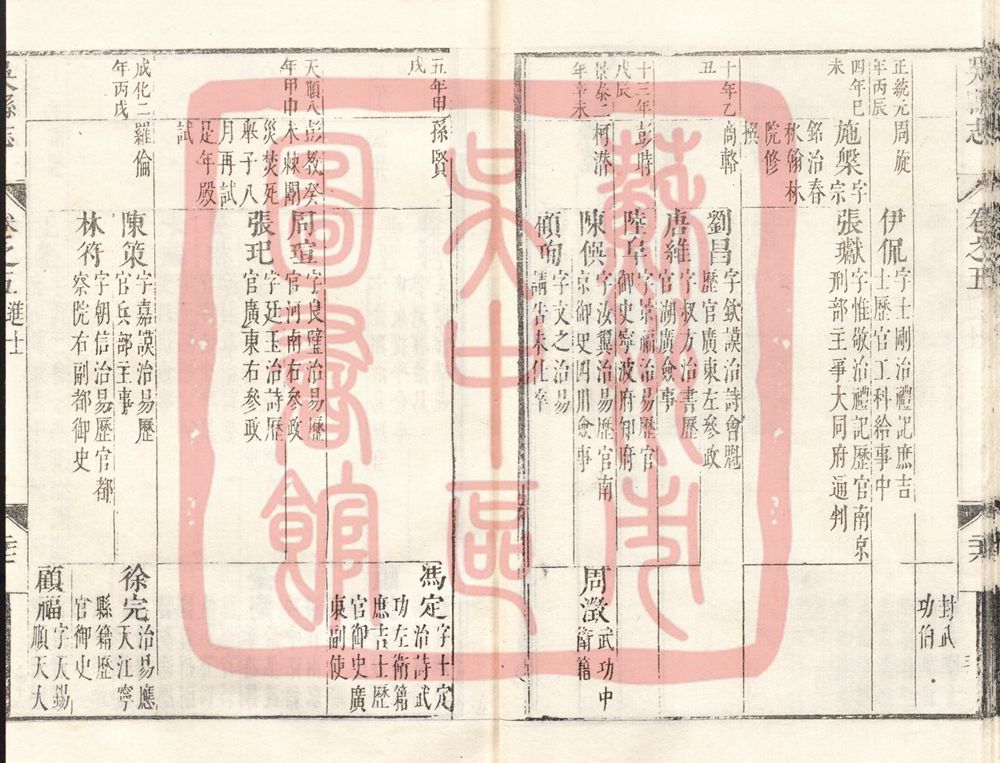 吳縣志
卷之五
三六
封武
功伯
正統元
年丙辰
周旋
伊侃
字士剛治禮記庶吉
士歷官工科給事中
四年己
未
施槃
字宗
銘治春
秋翰林
院修
撰
張瓛
字惟敬治禮記歷官南京
刑部主事大同府通判
十年乙
丑
商輅
劉昌
字欽謨治詩會魁
歷官廣東左參政
唐維
字叔方治書歷
官湖廣僉事
十三年
戊辰
彭時
陸阜
字景瞻治易歷官
御史寧波府知府
景泰二
年辛未
柯潛
陳僎
字汝翼治易歷官南
京御史四川僉事
周澂
武功中
衛籍
顧珣
字文之治易
請告未仕卒
五年甲
戌
孫賢
馮定
字士定
治詩武
功左衛籍
庶吉士歷
官御史廣
東副使
天順八
年甲申
彭教
癸
未棘闈
災焚死
舉子八
月再試
是年殿
試
周瑄
字良璧治易歷
官河南右參政
張玘
字廷玉治詩歷
官廣東右參政
成化二
年丙戌
羅倫
陳策
字嘉謨治易歷
官兵部主事
徐完
治易應
天江寧
縣籍歷
官御史
林符
字朝信治易歷官都
察院右副都御史
顧福
字天錫
順天人
吳縣志
卷之五
進士
蘇州市
吳中區
圖書館